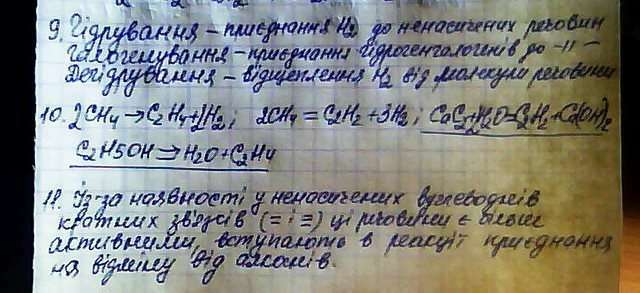 9. Гідрування – приєднання H2 до ненасичених речовин
галогенування – приєднання гідрогенгалогенів до –//–
Дегідрування – відщеплення H2 від молекули речовини
10. 2CH4 → C2H4+2H2; 2CH4 = C2H2 + 3H2; CaC2+H2O=C2H2+Ca(OH)2
C2H5OH ⇒ H2O + C2H4
11. Із-за наявності у ненасичених вуглеводнів
кратних зв'язків (= і ≡) ці речовини є більш
активними, вступають в реакції приєднання
на відміну від алканів.